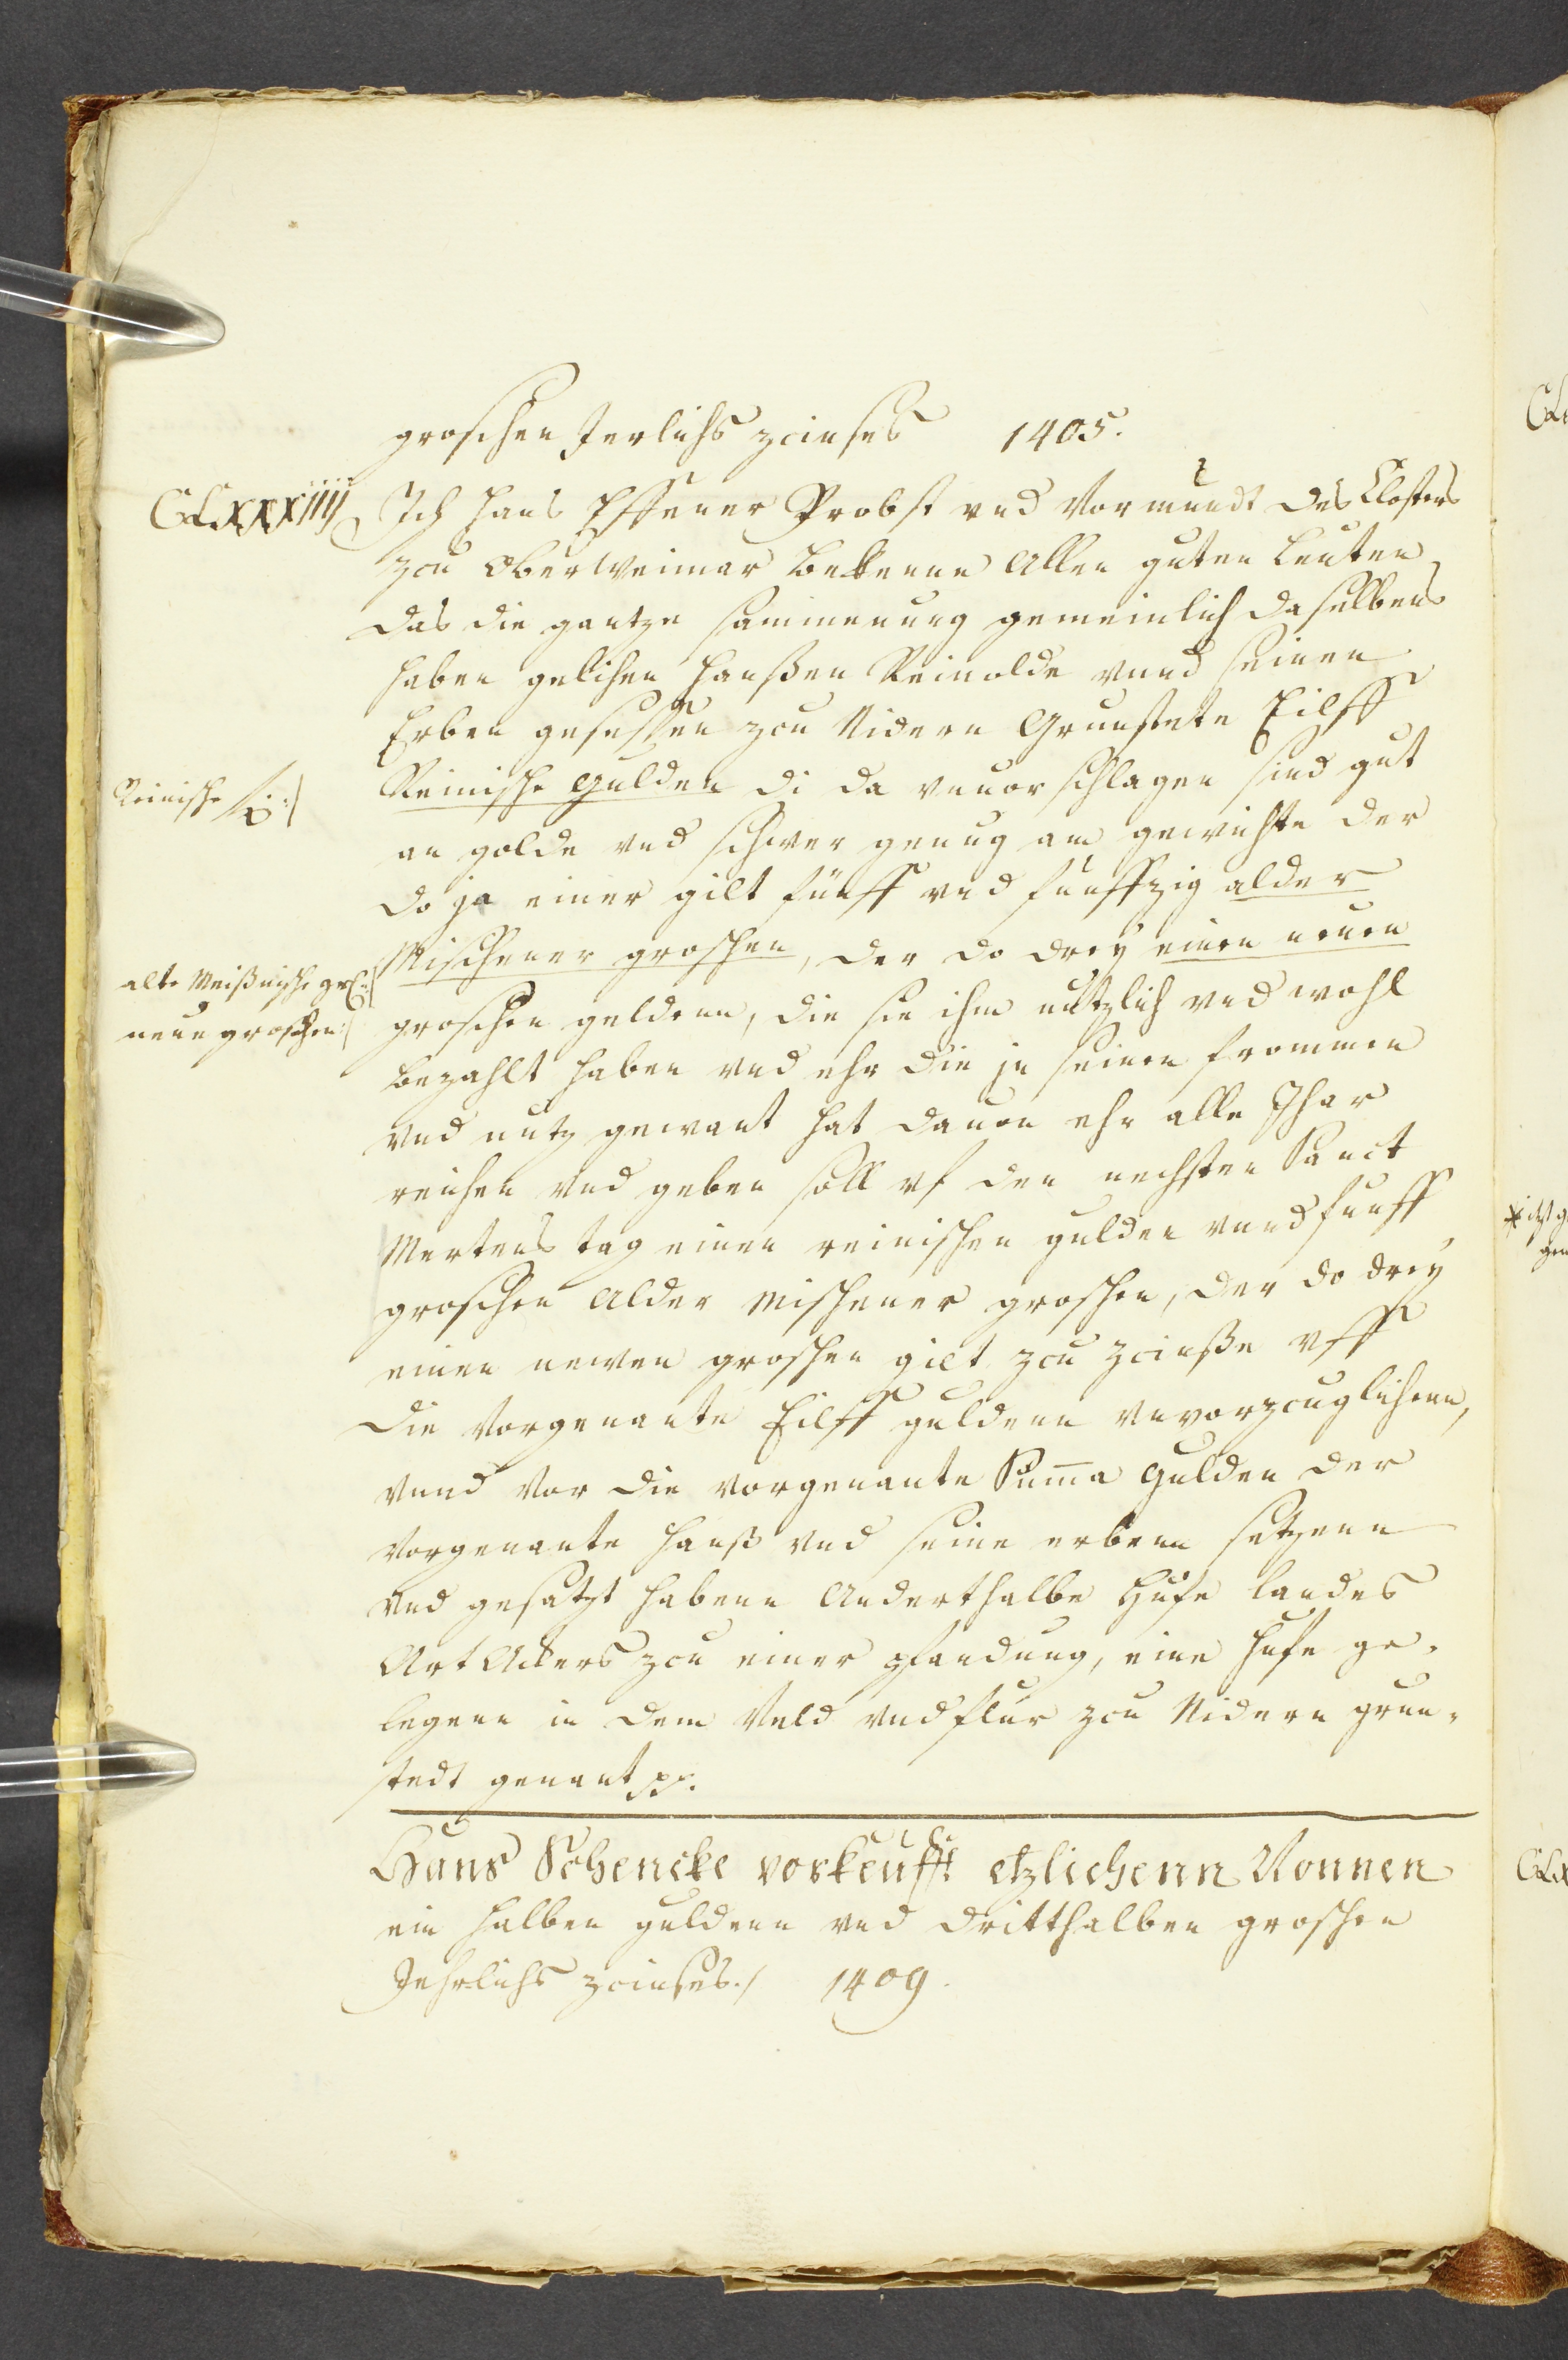 groschen Jerlichs zcinses 1405.
CLXXXIIII Ich Hans Effener Probst vnd Vormundt des Closters
zcu OberWeimar bekenne Allen guten Leuten
das die gantze sammenung gemeinlich daselbens
haben gelihen Hanßen Reinolde vnnd seinen
Erben gesessen zcu Nidern Grunstete Eilff
Reinische Reinische gulden di da vnuorschlagen sind gut
an golde vnd schwer genug am gewichte der
do ja einer gilt fünff vnd funffzig alder
alte Meißnische gr. Mischener groschen, der do drey einen neuen
neue groschen groschen geldenn, die sie ihm nutzlich vnd wohl
bezahlt haben vnd ehr die in seinen frommen
vnd nutz gewant hat dauon ehr alle Jhar
reichen vnd geben soll vf den nechsten Sanct
Mertens tag einen reinischen gulden vnnd funff
groschen Alder mischener groschen, der do drey
einen newen groschen gilt zcu zcinße vff
die Vorgenante Eilff guldenn vnvorzcuglichenn,
vnnd vor die vorgenante Sum̄a Gulden der
Vorgenante Hanß vnd seine erbenn setzenn
vnd gesatzt habenn Anderthalbe Hufe landes
Art Ackers zcu einer pfandung, eine Hufe ge-
legenn in dem Veld vnd flur zcu Nidern grun-
stedt genant pp.
Hans Schencke vorkeufft etzlichenn Nonnen
ein halben guldenn vnd dritthalben groschen
Jehrlichs zcinses./ 1409.